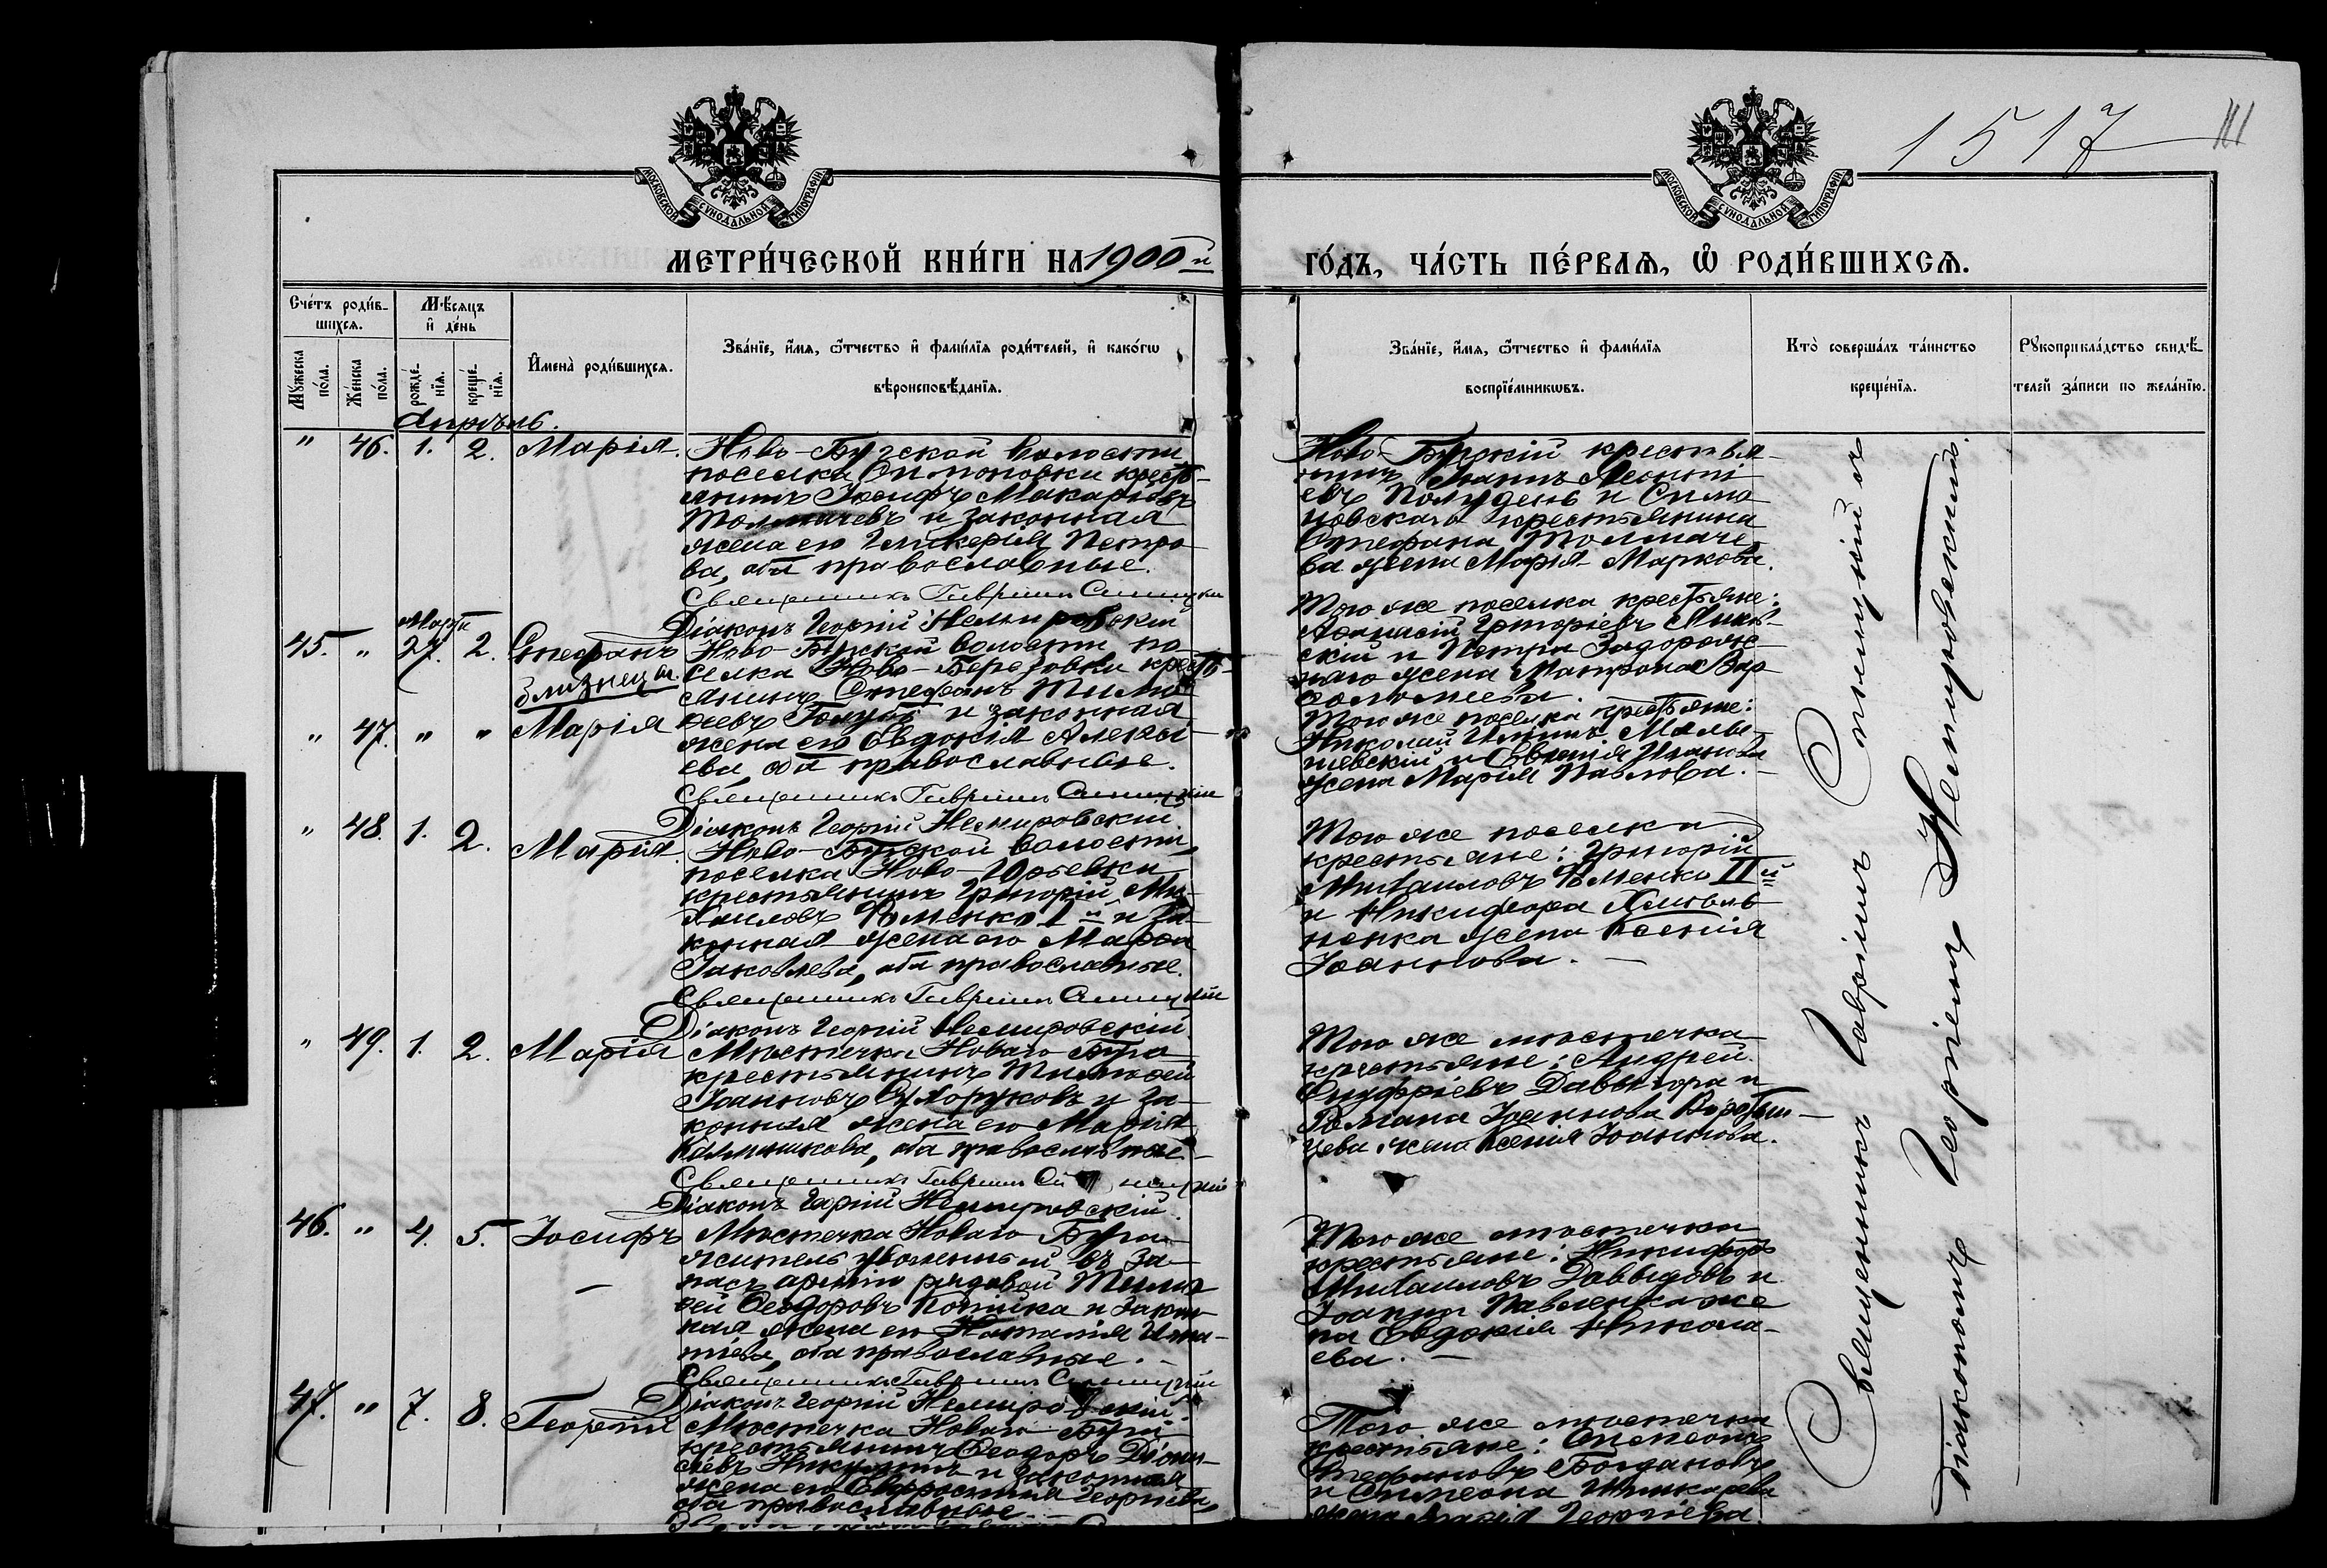 1517
111
МОСКОВСКОЙ СУНОДАЛЬНОЙ ТИПОГРАФІИ
МОСКОВСКОЙ СУНОДАЛЬНОЙ ТИПОГРАФІИ
МЕТРИ́ЧЕСКОЙ КНИ́ГИ НА 1900 й
ГО́ДЪ, ЧА́СТЬ ПЕ́РВАѦ, Ѡ РОДИ́ВШИХСѦ.
Сче́тъ роди́в-
шихсѧ.
Мꙋжеска по́ла.
Же́нска по́ла.
Мѣ́сѧцъ
и҆ де́нь
рожде́-нїѧ.
креще́-нїѧ.
И҆мена̀ роди́вшихсѧ.
Зва́нїе, и҆́мѧ, ѻ҆́тчество и҆ фами́лїѧ роди́телей, и҆ како́гѡ
вѣроисповѣ́данїѧ.
Зва́нїе, и҆́мѧ, ѻ҆́тчество и҆ фами́лїѧ
воспрїе́мникѡвъ.
Кто̀ соверша́лъ та́инство
креще́нїѧ.
Рꙋкоприкла́дство свидѣ́-
телей за́писи по жела́нїю.
Апрѣль.
" 46. 1. 2. Марія. Ново-Бугской волости
поселка Симоновки кресть-
янинъ Іосифъ Макаріевъ
Толмачевъ и законная
жена его Гликерія Петро-
ва, оба православные.
Священникъ Гавріилъ Синицкій
Діаконъ Георгій Немировскій
Ново-Бугскій крестья-
нинъ Іоаннъ Леонті-
евъ Полудень и Симо-
новскаго крестьянина
Стефана Толмаче-
ва жена Марія Маркова.
45. " Марта 27. 2. Стефанъ
близнецы
Ново-Бугской волости по-
селка Ново-Березовки кресть-
янинъ Стефанъ
Голубъ и законная
жена его Евдокія Алексі-
ева, оба православные.
Священникъ Гавріилъ Синицкій
Діаконъ Георгій Немировскій
" 47. " " Марія
Того же поселка крестьяне:
Григорьевъ
скій и Петра Задорож-
наго жена Матрона Вар-
Того же поселка крестьяне:
Николай Ильинъ
шевскій и Евгенія Иванова
жена Марія Павлова.
" 48. 1. 2. Марія. Ново-Бугской волости,
поселка Ново-Юрьевки
крестьянинъ Григорій Ми-
хаиловъ Фоменко I й и за-
конная жена его Марѳа
Іаковлева, оба православные.
Священникъ Гавріилъ Синицкій
Діаконъ Георгій Немировскій
Того же поселка
крестьяне: Григорій
Михаиловъ Фоменко II й
и Никифора
ненка жена Ксенія
Іоаннова.
" 49. 1. 2. Марія Мѣстечка Новаго Буга
крестьянинъ Тимоѳей
Іоанновъ Сухоруковъ и за-
конная жена его Марія
Калинникова, оба православные
Священникъ Гавріилъ Синицкій
Діаконъ Георгій Немировскій.
Того же мѣстечка
крестьяне: Андрей
Онуфріевъ Давыгора и
Романа Іоаннова
жена Ксенія Іоаннова.
46. " 4. 5. Іосифъ Мѣстечка Новаго Буга
житель уволенный въ за-
пасъ арміи рядовой Тимо-
ѳей Ѳеодоровъ и закон-
ная жена его Наталія Игна-
тіева, оба православные.
Священникъ Гавріилъ Синицкій
Діаконъ Георгій Немировскій.
Того же мѣстечка
крестьяне: Никифоръ
Михаиловъ Давыдовъ и
Іоанна Павленка же-
на Евдокія Никола-
ева.
47. " 7. 8. Георгій Мѣстечка Новаго Буга
крестьянинъ Ѳеодоръ Діони-
сіевъ Никулинъ и законная
жена его Евфросинія Георгіева,
оба православные.
Того же мѣстечка
крестьяне: Симеонъ
Стефановъ Богдановъ
и Симеона Шинкарева
жена Марія Георгіева.
Священникъ Гавріилъ Синицкій съ
діакономъ Георгіемъ Немировскимъ.